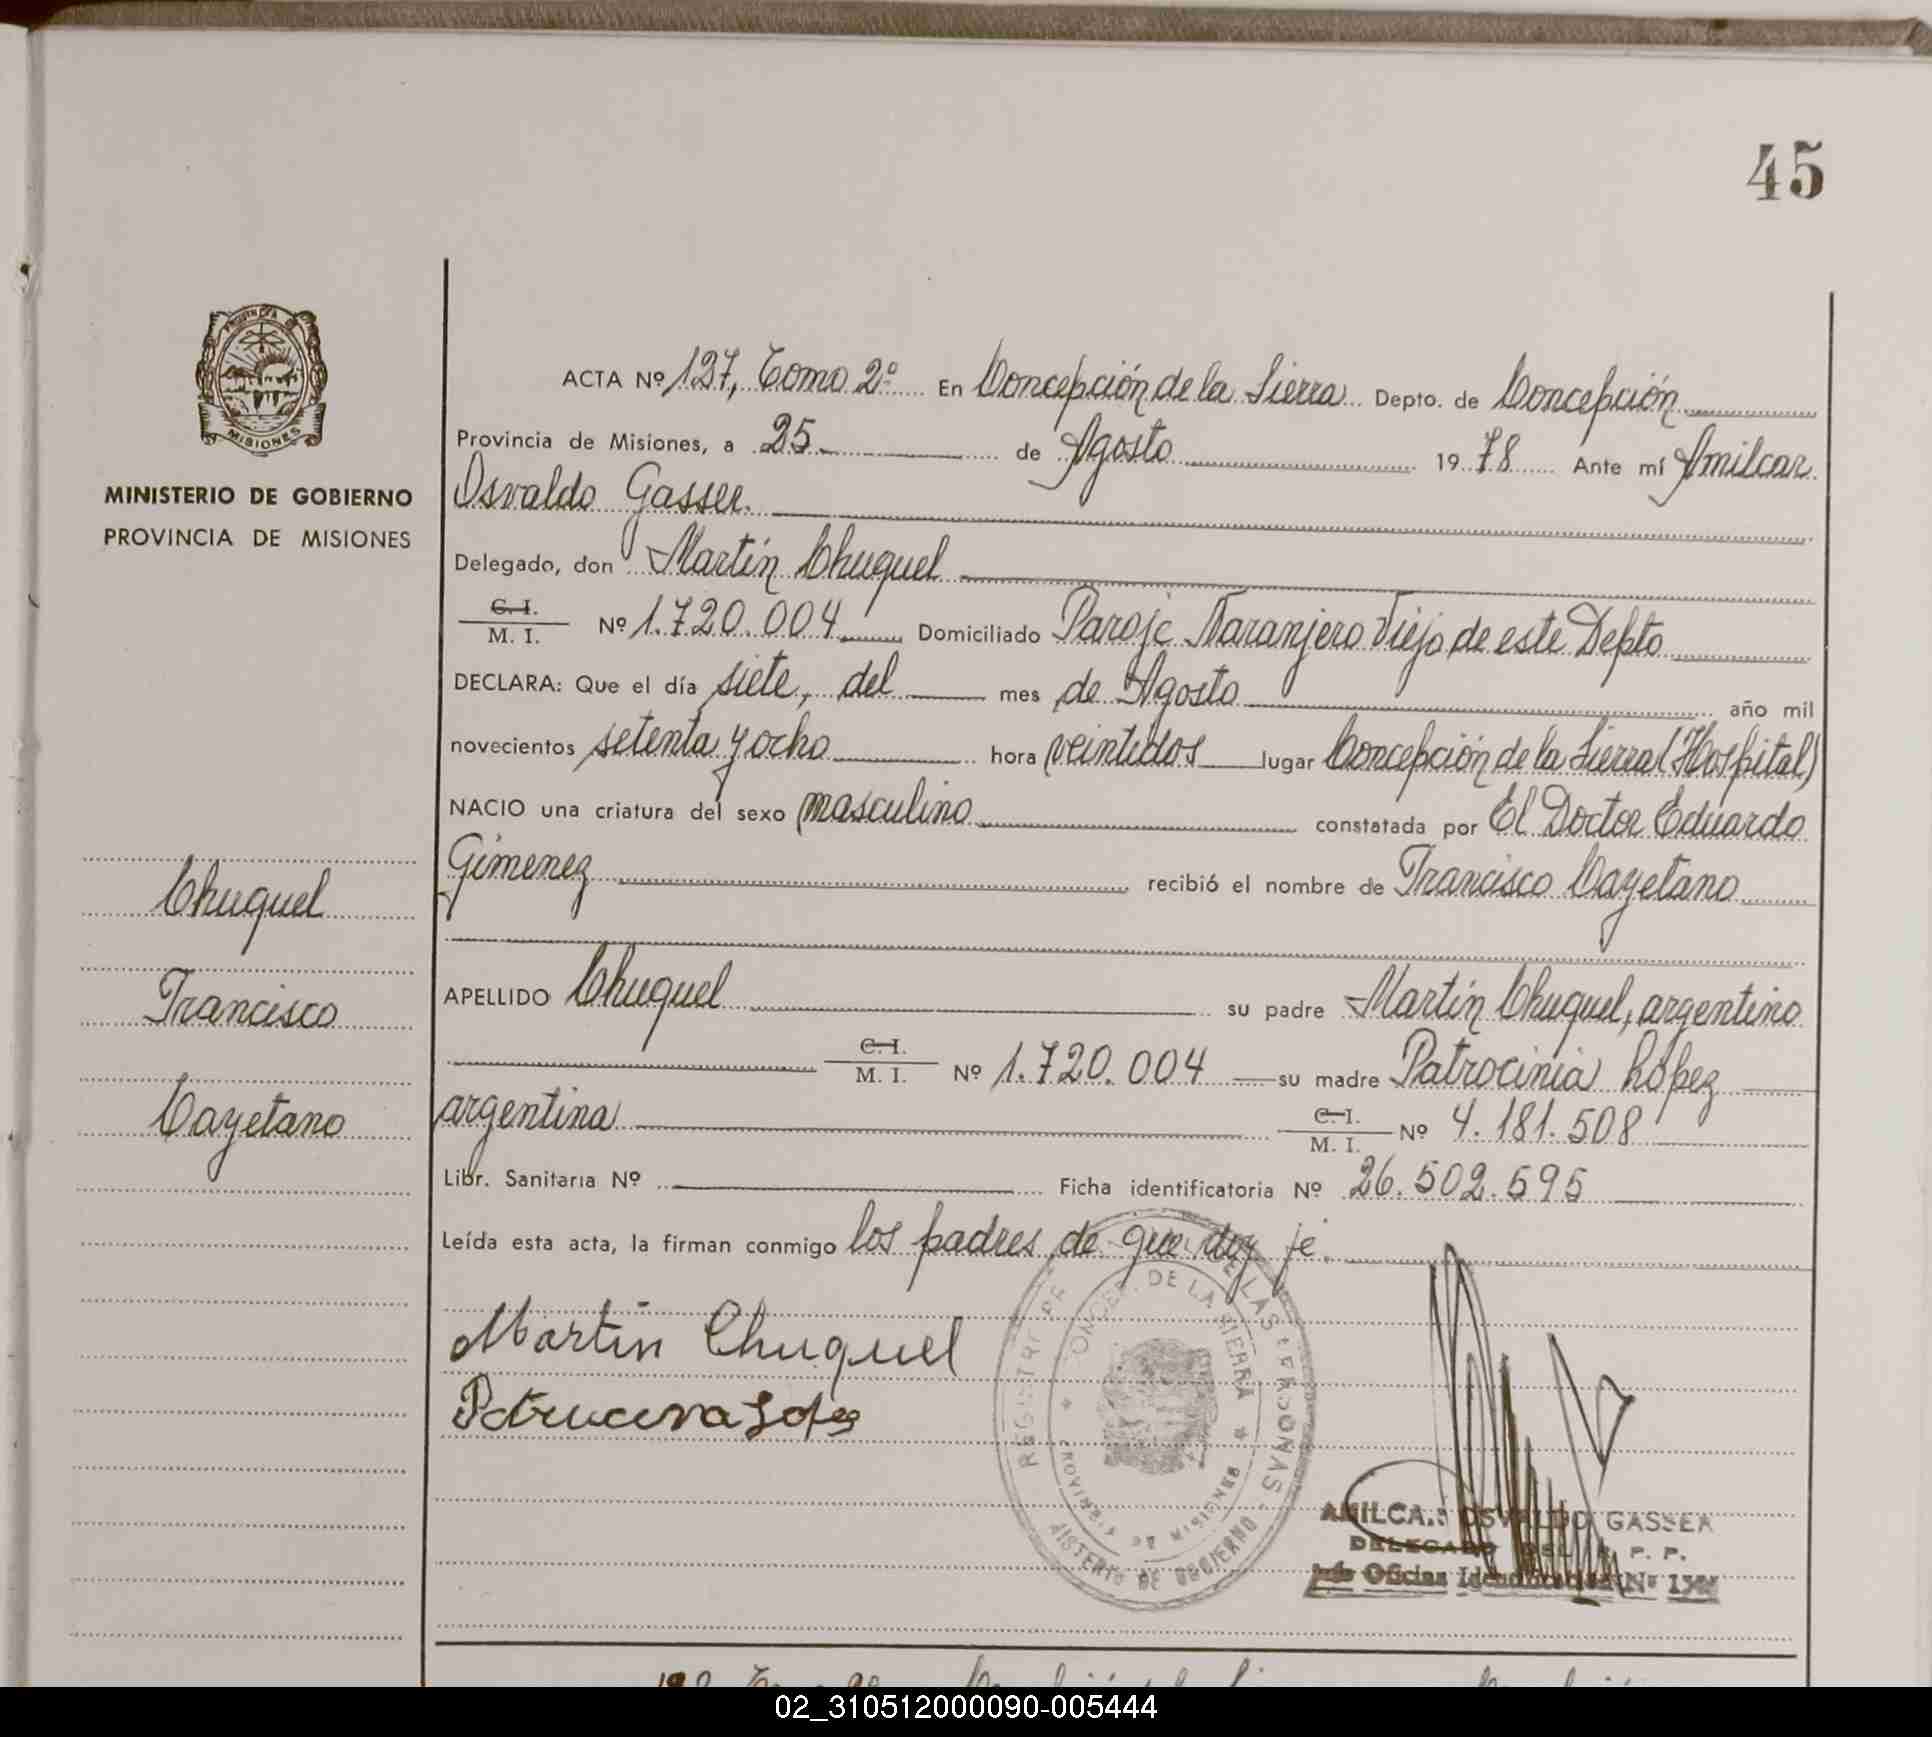 45
PROVINCIA DE
MISIONES
MINISTERIO DE GOBIERNO
PROVINCIA DE MISIONES
Chuquel
Francisco
Cayetano
ACTA Nº 127, Tomo 2º En Concepción de la Sierra Depto. de Concepción
Provincia de Misiones, a 25 de Agosto 1978 Ante mí Amilcar
Osvaldo Gasser.
Delegado, don Martín Chuquel
C. I. / M. I. Nº 1.720.004 Domiciliado Paraje Naranjero Viejo de este Depto
DECLARA: Que el día siete, del mes de Agosto año mil
novecientos setenta y ocho hora veintidos lugar Concepción de la Sierra (Hospital)
NACIO una criatura del sexo masculino constatada por El Doctor Eduardo
Gimenez recibió el nombre de Francisco Cayetano
APELLIDO Chuquel su padre Martín Chuquel, argentino
C. I. / M. I. Nº 1.720.004 su madre Patrocinia López
argentina C. I. / M. I. Nº 4.181.508
Libr. Sanitaria Nº Ficha identificatoria Nº 26.502.595
Leída esta acta, la firman conmigo los padres de que doy fé.
Martin Chuquel
REGISTRO DE LAS PERSONAS
CONCEP. DE LA SIERRA
PROVINCIA DE MISIONES
MINISTERIO DE GOBIERNO
AMILCAR OSVALDO GASSER
DELEGADO DEL R. P. P.
Jefe Oficina Identificadora Nº
02_310512000090-005444